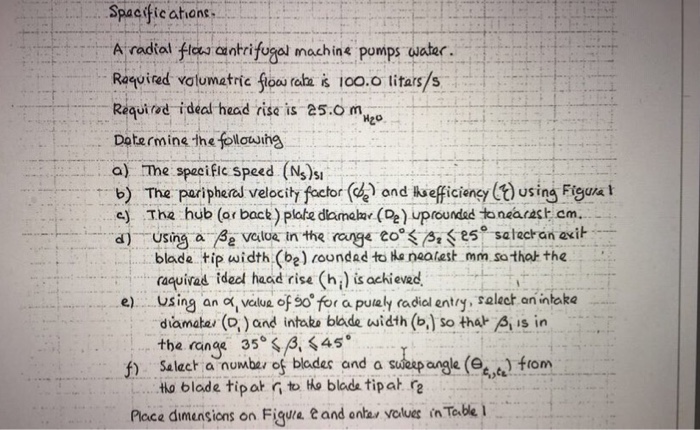 Specifications.
A radial flow centrifugal machine pumps water.
Required volumetric flow rate is 100.0 liters/s
Required ideal head rise is 25.0 m H2O
Determine the following
a) The specific speed (Ns)SI
b) The peripheral velocity factor (ϕe) and the efficiency (η) using Figure 1
c) The hub (or back) plate diameter (D2) uprounded to nearest cm.
d) Using a β2 value in the range 20° ≤ β2 ≤ 25° select an exit
blade tip width (b2) rounded to the nearest mm so that the
required ideal head rise (hi) is achieved.
e) Using an α1 value of 90° for a purely radial entry, select an intake
diameter (D1) and intake blade width (b1) so that β1 is in
the range 35° ≤ β1 ≤ 45°
f) Select a number of blades and a sweep angle (θt1,t2) from
the blade tip at r1 to the blade tip at r2
Place dimensions on Figure 2 and enter values in Table 1